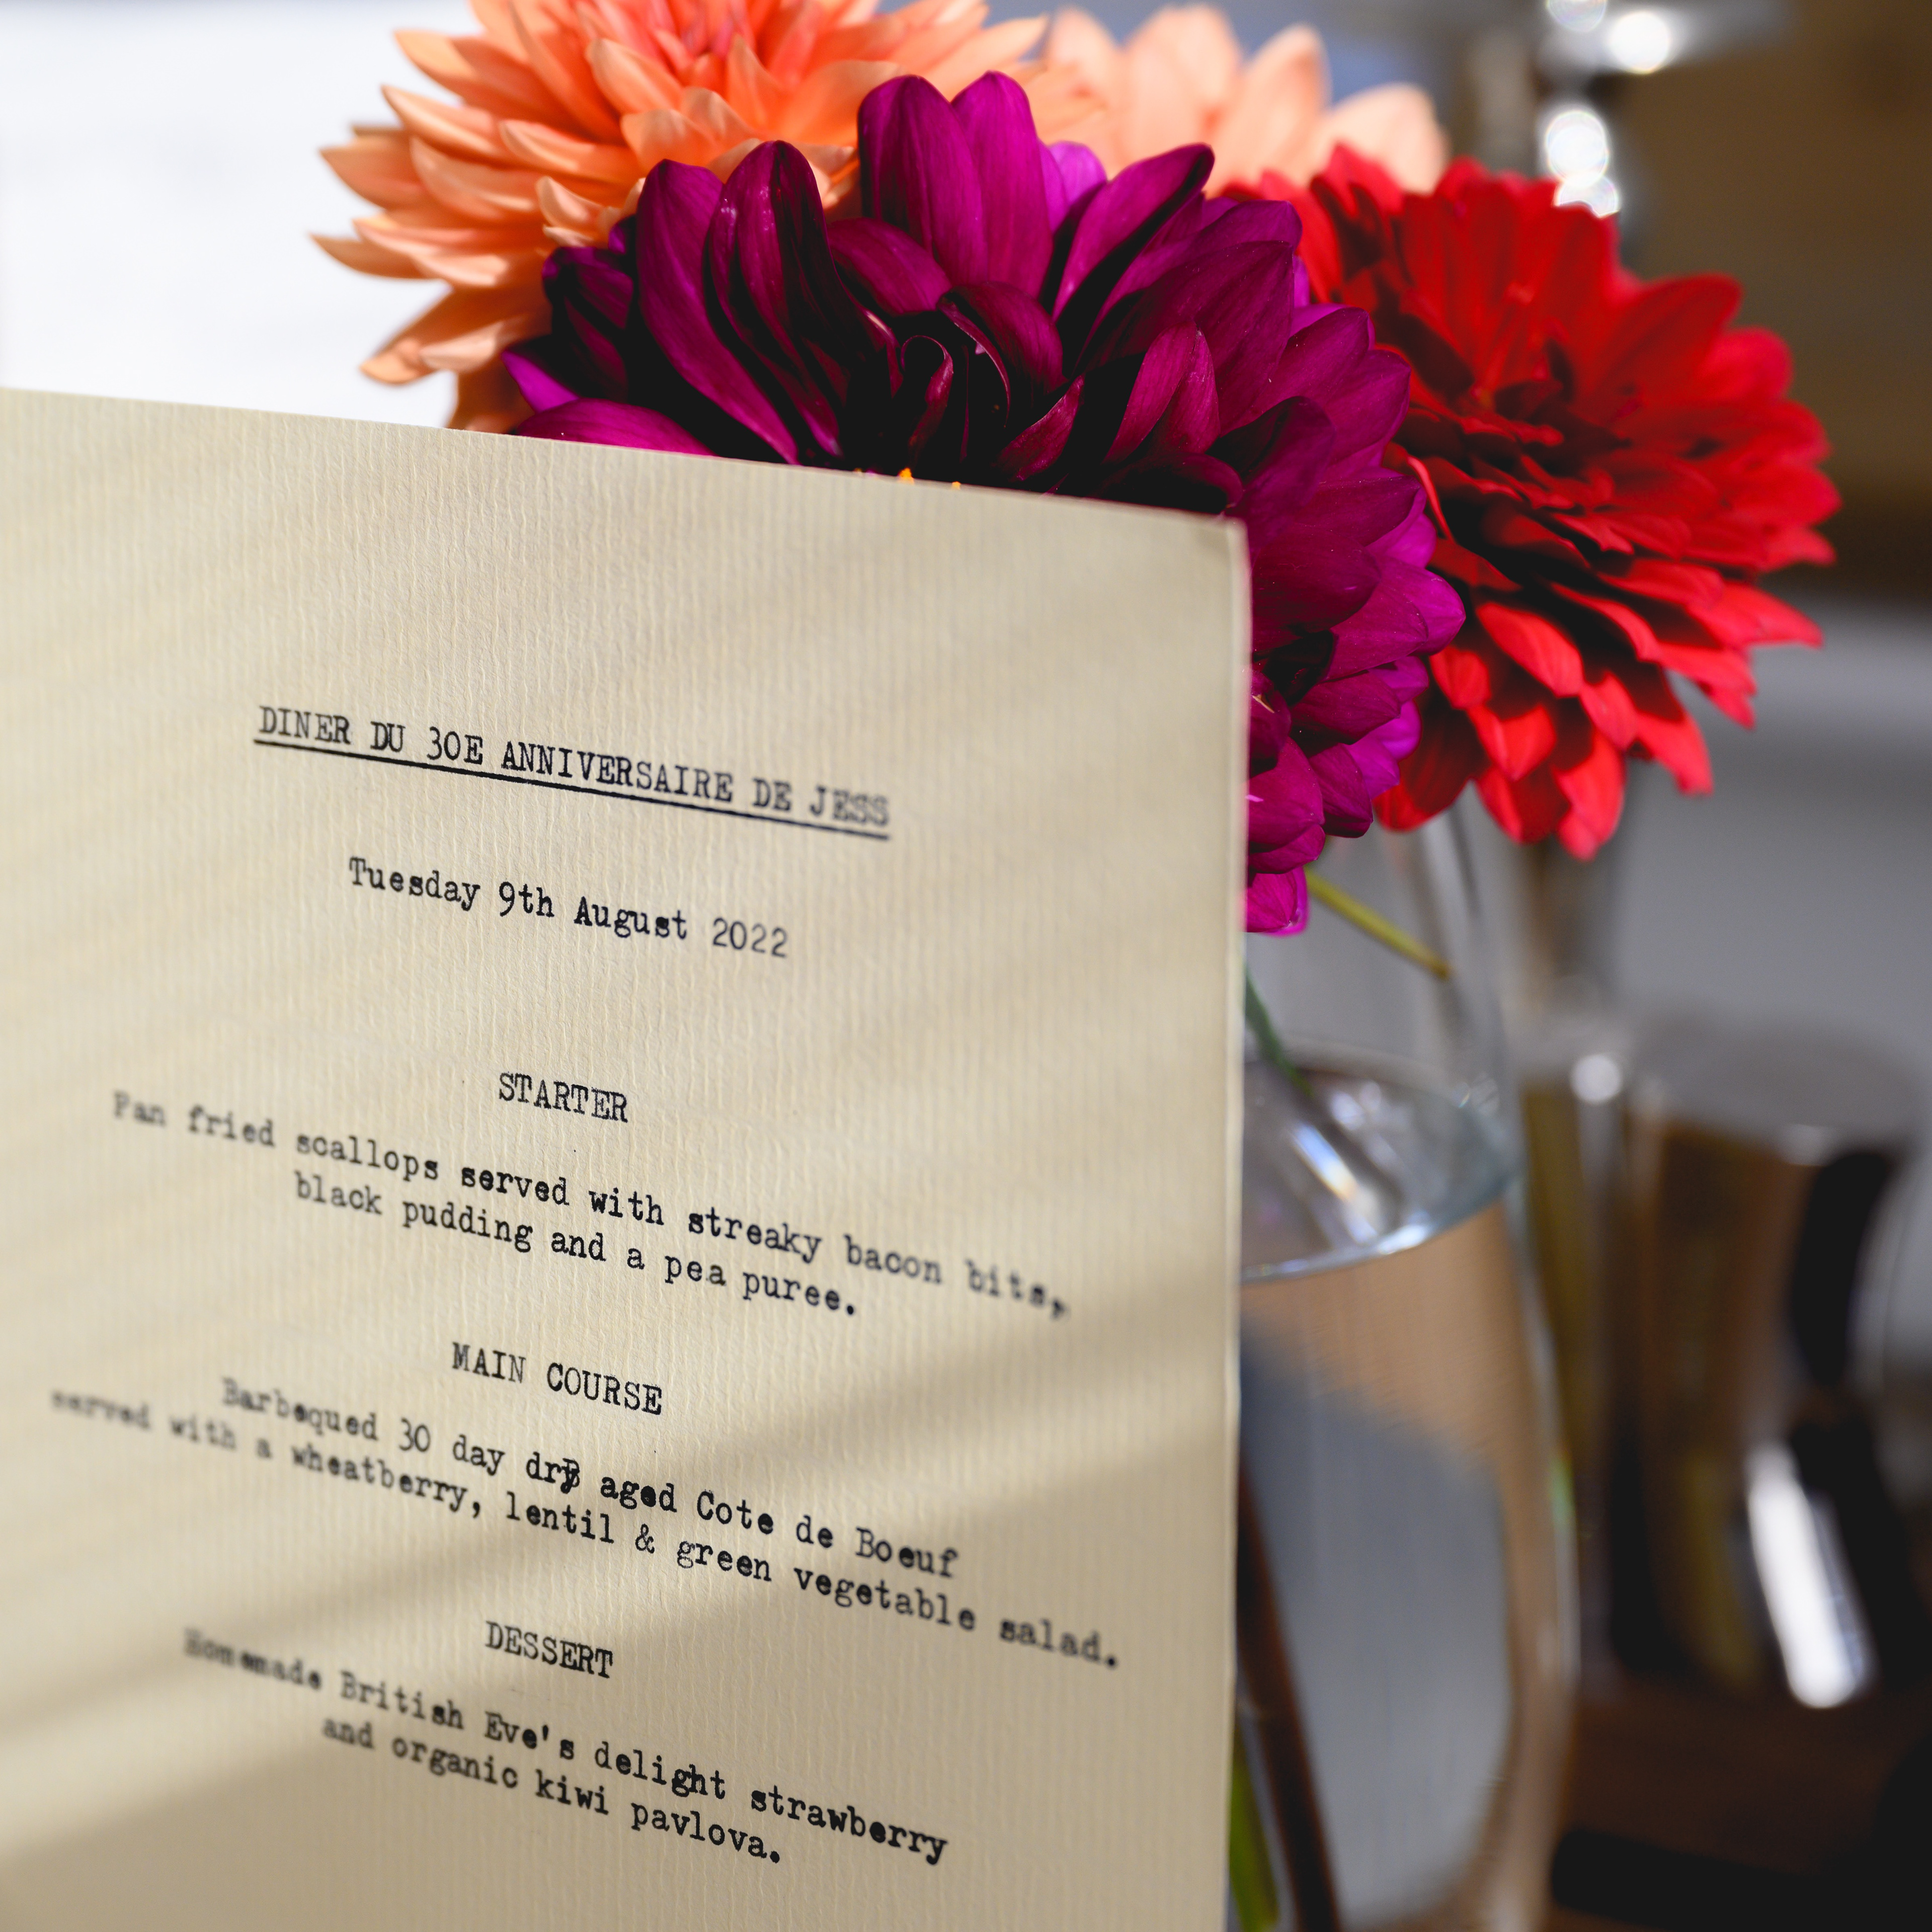 DINER DU 30E ANNIVERSAIRE DE JESS
Tuesday 9th August 2022
STARTER
Pan fried scallops served with streaky bacon bits,
black pudding and a pea puree.
MAIN COURSE
Barbequed 30 day dry aged Cote de Boeuf
served with a wheatberry, lentil & green vegetable salad.
DESSERT
Homemade British Eve's delight strawberry
and organic kiwi pavlova.